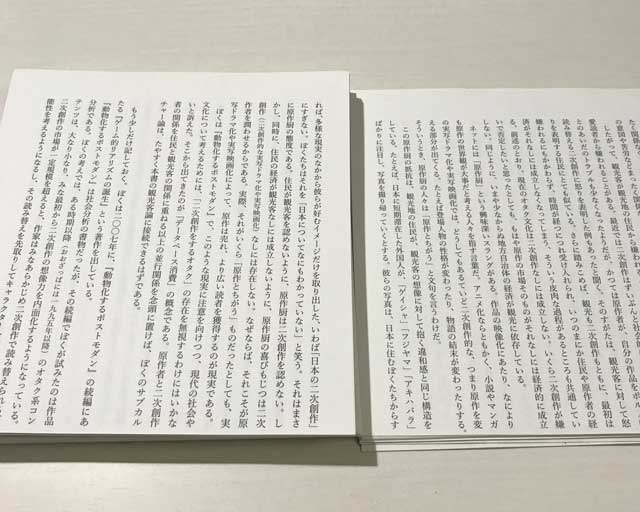 の意図や苦労などまったく
したがって、観光客が観光地の住民か
愛読者から嫌われることがある。最近では二次創作者も、最初は
とのあいだのトラブルも少なくなったが、かつては原作者
読み替えることに怒りを表明した例もあったと聞く。
を表明する住民にとても似ている。さらに踏みこめば、
嫌われるにもかかわらず、時間が経つにつれ受け入れられ、いつのまにか住民や原作者の経
済がそれなしには成立しなくなってしまう、そういう皮肉な過程があるところも共通してい
る。前述のとおり、現在のオタク文化は二次創作なしに成立しない。いくら二次創作が嫌
いで否定したいと思ったとしても、もはや原作の市場そのものがそれなしには経済的に成立
しない。同じように、いまや少なからぬ地方自治体の経済が観光に依存している。
ネットには「原作厨」という興味深いスラングがある。作品の映像化にあたり、なにより
も原作の世界観が大事だと考える人々を指す言葉だ。アニメ化ならともかく、小説やマンガ
のドラマ化や実写映画化では、どうしてもあるていど二次創作的な、つまり原作を変
える部分が出てくる。たとえば登場人物の性格が変わったり、物語の結末が変わったりする。
そういうとき、原作厨の人々は「原作とちがう」と文句を言うわけだ。
この原作厨の抵抗は、観光地の住民が、観光客の想像に対して抱く違和感と同じ構造を
している。たとえば、日本に短期滞在した外国人が、「ゲイシャ」「フジヤマ」「アキハバラ」
ばかりに注目し、写真を撮り帰っていくとする。彼らの写真は、日本に住むぼくたちからす
れば、多様な現実のなかから彼らが好むイメージだけを取り出した、いわば「日本の二次創作」
にすぎない。ぼくたちはそれを「日本についてなにもわかっていない」と笑う。それはまさ
に原作厨の態度である。住民が観光客を認めないように、原作厨は二次創作を認めない。し
かし、同時に、住民の経済が観光客なしには成立しないように、原作厨の喜びもじつは二次
創作(二次創作的な実写ドラマ化や実写映画化)なしには存在しない。なぜならば、それこそが原
作者を潤わせるからである。実際、それがいくら「原作とちがう」ものだったとしても、実
写ドラマ化や実写映画化によって、原作は売れ、より広い読者を獲得するのが現実である。
ぼくは『動物化するポストモダン』で、このような現実に注意を向けつつ、現代の社会や
文化について考えるためには、「二次創作をするオタク」の存在を無視するわけにはいかな
いと訴えた。そこから出てきたのが「データベース消費」の概念である。原作者と二次創作
者の関係を住民と観光客の関係に重ねる以上の並行関係を念頭に置けば、ぼくのサブカル
チャー論は、たやすく本書の観光客論に接続できるはずである。
もう少しだけ記しておく。ぼくは二〇〇七年に、『動物化するポストモダン』の続編にあ
たる『ゲーム的リアリズムの誕生』という著作を出している。
『動物化するポストモダン』は社会分析の書物だったが、その続編でぼくが試みたのは作品
分析である。ぼくの考えでは、ある時期以降(おおざっぱには一九九五年以降)のオタク系コン
テンツは、大なり小なり、みな最初から二次創作の想像力を内面化するようになっている。
二次創作の市場が一定規模を超えると、作家はみなあらかじめ二次創作で読み替えられる
能性を考えるようになるし、その読み替えを先取りしてキャラクタ